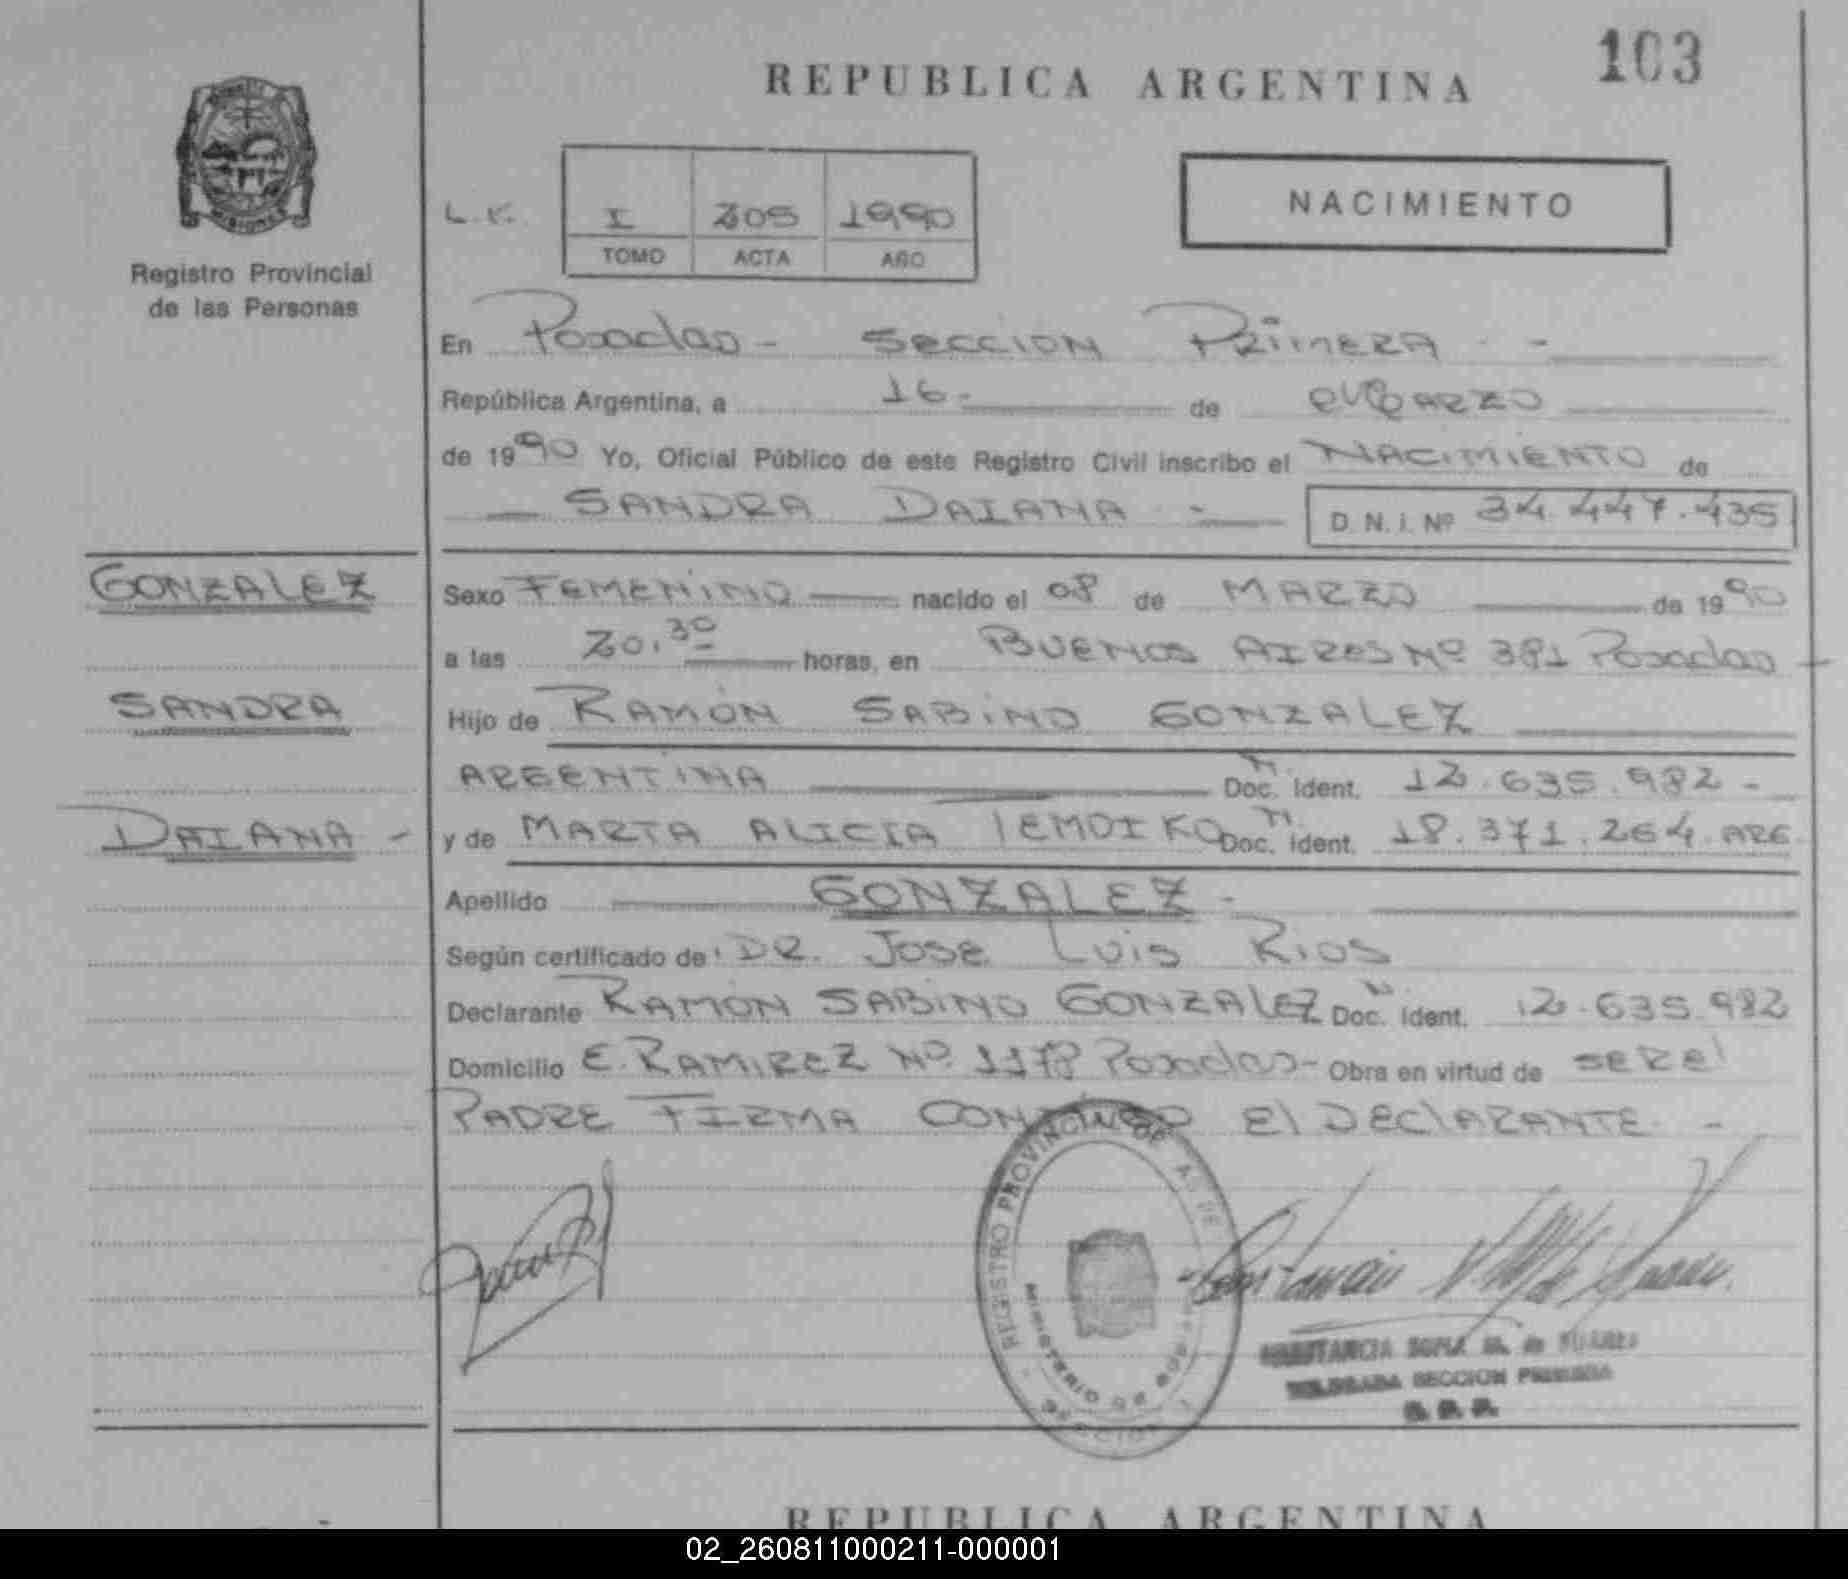 REPUBLICA ARGENTINA
103
MISIONES
Registro Provincial
de las Personas
NACIMIENTO
I 205 1990
TOMO ACTA AÑO
En Posadas - SECCION PRIMERA - -
República Argentina, a 16 - de MARZO
de 1990 Yo, Oficial Público de este Registro Civil inscribo el NACIMIENTO de
SANDRA DAIANA - D.N.I. Nº 34.447.435
GONZALEZ
SANDRA
DAIANA -
Sexo FEMENINO nacido el 08 de MARZO de 1990
a las 20,30 horas, en BUENOS AIRES Nº 381 Posadas -
Hijo de RAMÓN SABINO GONZALEZ
ARGENTINA Doc. Ident. 12.635.982 -
y de MARTA ALICIA TEMDIKO Doc. Ident. 18.371.264. ARG
Apellido GONZALEZ -
Según certificado de: DR. JOSE LUIS RIOS
Declarante RAMÓN SABINO GONZALEZ Doc. Ident. 12.635.982
Domicilio E. RAMIREZ Nº 1178 Posadas - Obra en virtud de SER el
PADRE FIRMA CONMIGO El DEClARANTE -
REGISTRO PROVINCIAL DE
MINISTERIO DE
SECCION PRIMERA
REPUBLICA ARGENTINA
02_260811000211-000001